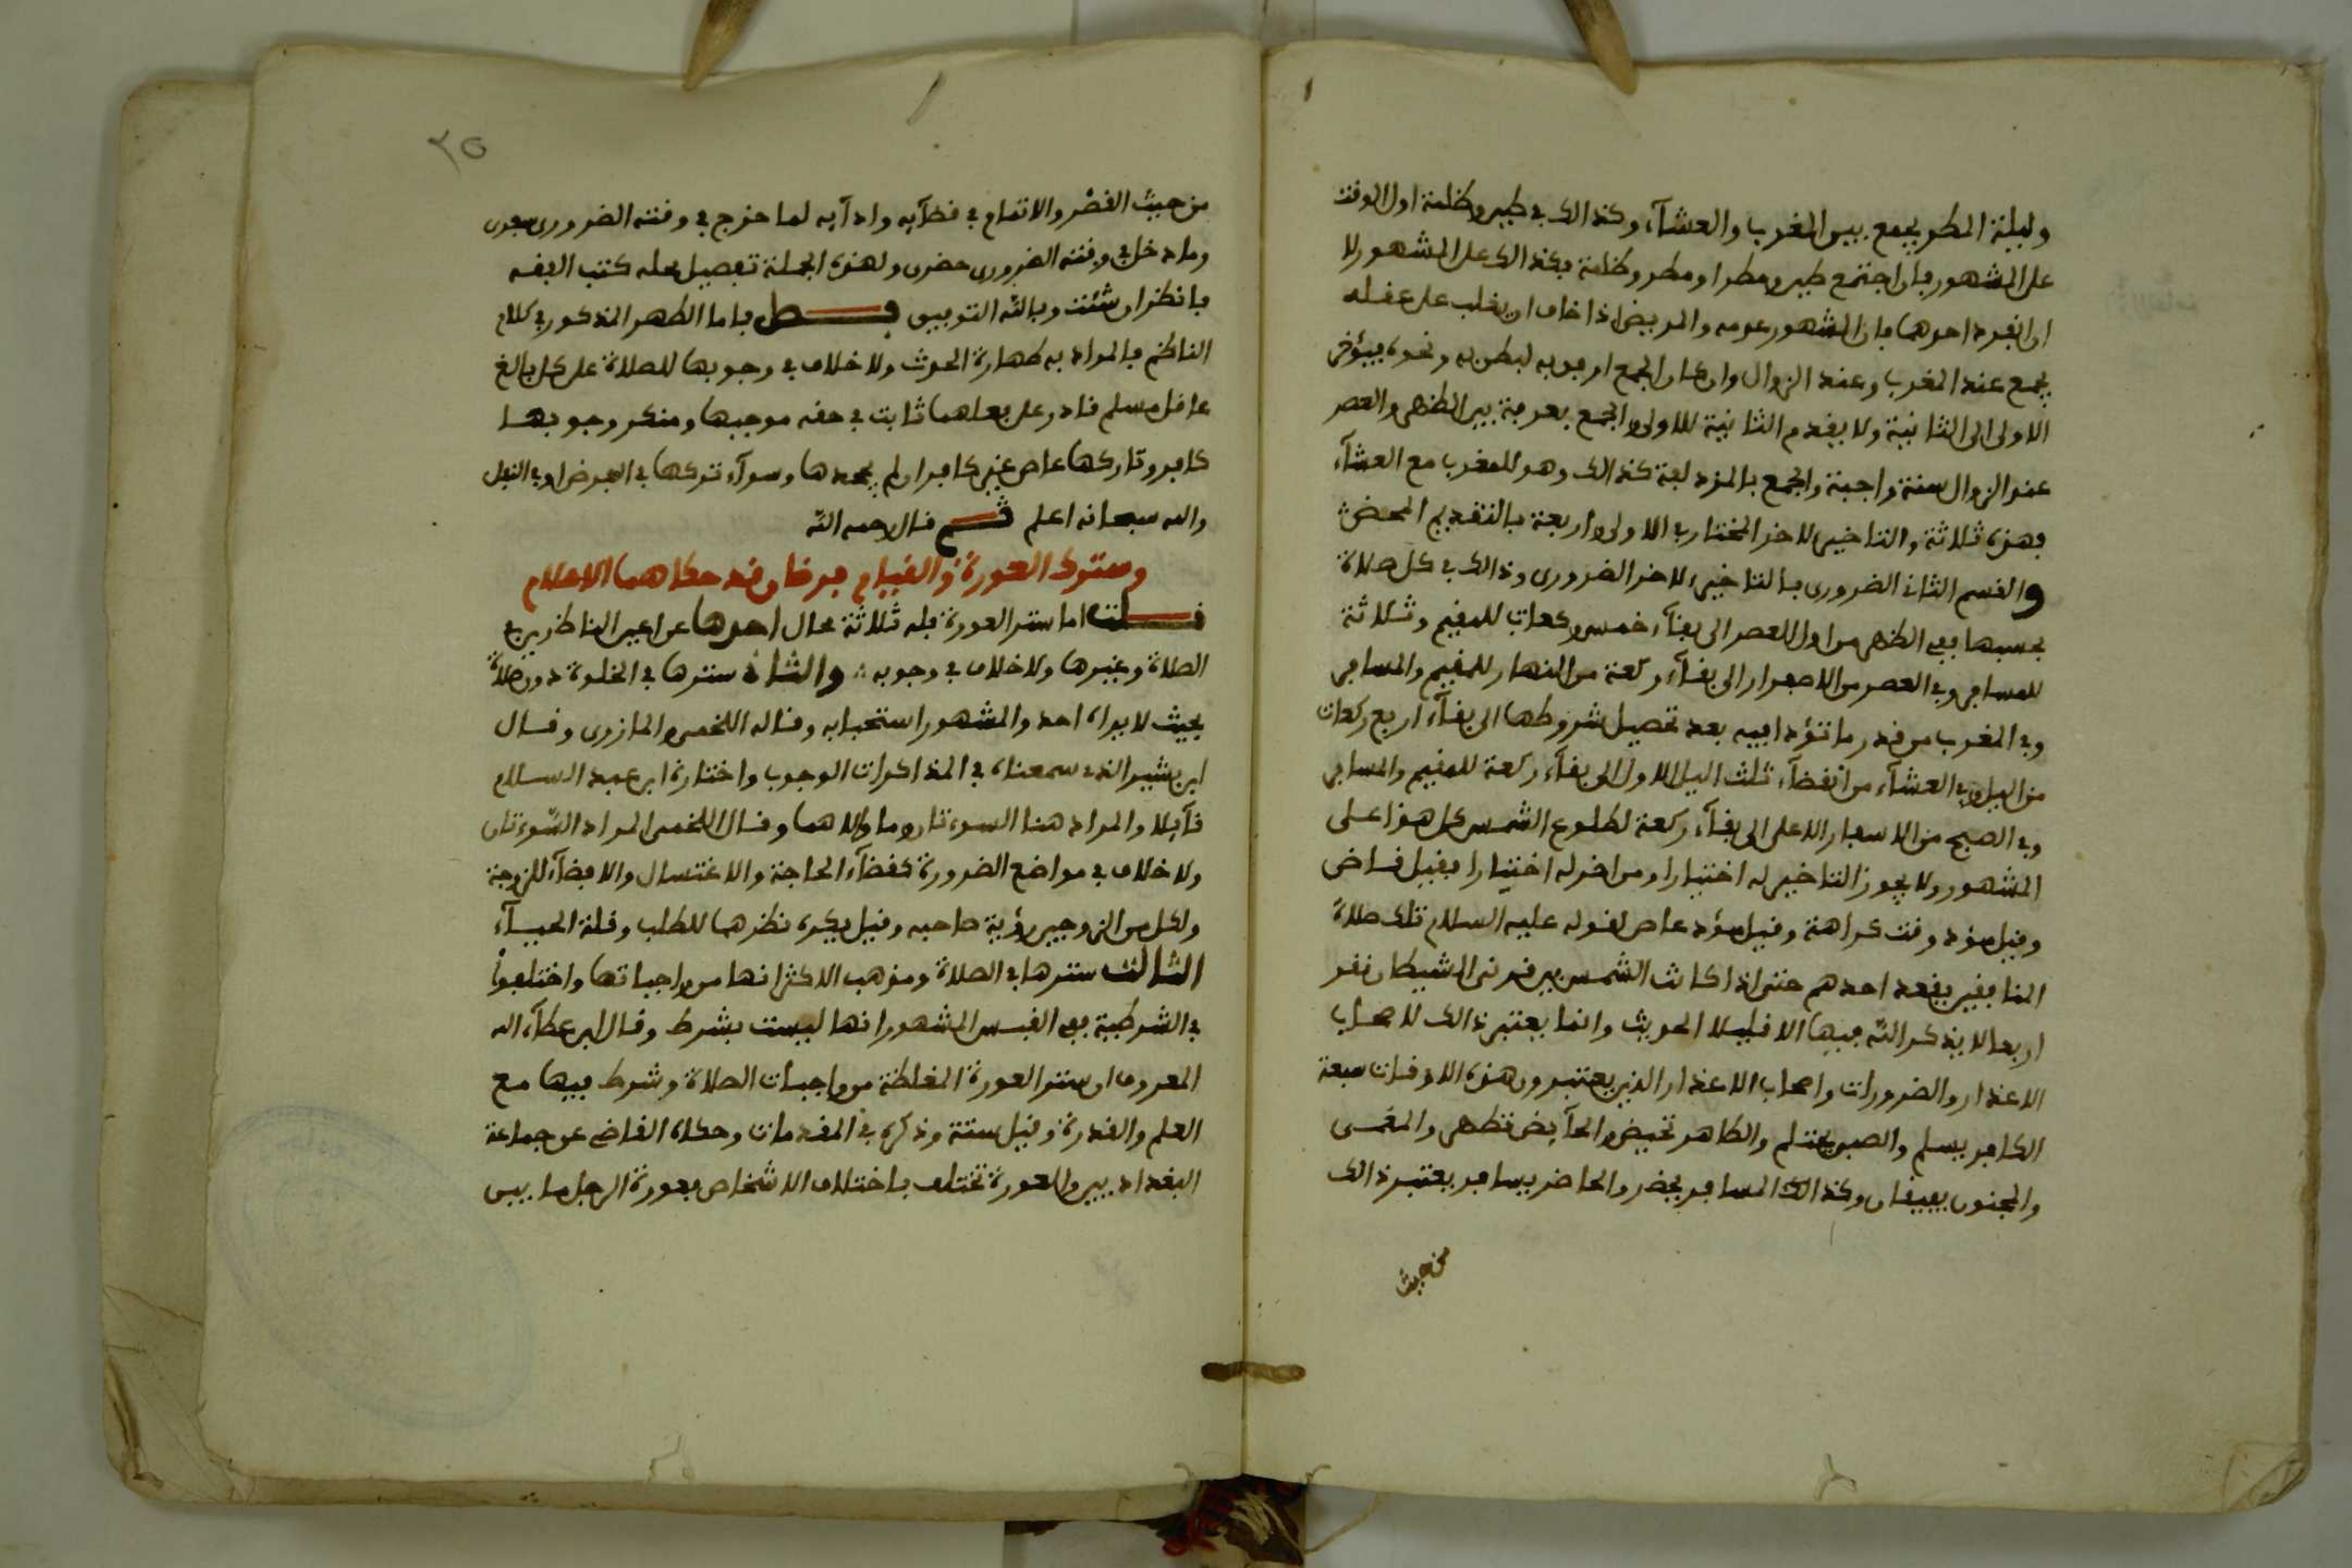 وليلة المطر يجمع بين المغرب والعشآء وكذالك في طين وظلمة اول الوقت
على المشهور فان اجتمع طين ومطر او مطر وظلمة فكذالك على المشهور لا
ان انفرد احدهما فان المشهور عدمه والمريض اذا خاف ان يغلب على عقله
يجمع عند المغرب وعند الزوال وان كان الجمع ارفق به لبطن به ونحوه فيؤخر
الاولى الى الثانية ولا يقدم الثانية للاولى والجمع بعرفة بين الظهر والعصر
عند الزوال سنة واجبة والجمع بالمزدلفة كذالك وهو للمغرب مع العشآء
فهذه ثلاثة والتاخير لاخر المختار في الاولى واربعة بالتقديم المحض
والقسم الثاني الضروري بالتاخير لاخر الضروري وذالك في كل صلاة
بحسبها ففي الظهر من اول العصر الى بقآء خمس ركعات للمقيم وثلاثة
للمسافر وفي العصر من الاصفرار الى بقآء ركعة من النهار للمقيم والمسافر
وفي المغرب من قدر ما تؤدا فيه بعد تحصيل شروطها الى بقآء اربع ركعات
من اليل وفي العشآء من انقضآء ثلث اليل الاول الى بقآء ركعة للمقيم والمسافر
وفي الصبح من الاسفار الاعلى الى بقآء ركعة لطلوع الشمس كل هذا على
المشهور ولا يجوز التاخير له اختيارا ومن اخر له اختيارا فقيل قاض
وقيل مؤد وقت كراهة وقيل مؤد عاص لقوله عليه السلام تلك صلاة
المنافقين يقعد احدهم حتى اذا كانت الشمس بين قرني الشيطان نقر
اربعا لا يذكر الله فيها الا قليلا الحديث وانما يعتبر ذالك لاصحاب
الاعذار والضرورات واصحاب الاعذار الذين يعتبرون هذه الاوقات سبعة
الكافر يسلم والصبي يحتلم والطاهر تحيض والحآيض تطهر والمغمى
والمجنون يفيقان وكذالك المسافر يحضر والحاضر يسافر يعتبر ذالك
من حيث
٢٥
من حيث القصر والاتمام في قضآيه وادآيه لما خرج في وقته الضروري سفرى
وما دخل في وقته الضروري حضرى ولهذه الجملة تفصيل محله كتب الفقه
فانظر ان شئت وبالله التوفيق فصل فاما الطهر المذكور في كلام
الناظم فالمراد به طهارة الحدث ولا خلاف في وجوبها للصلاة على كل بالغ
عاقل مسلم قادر على فعلهما ثابت في حقه موجبها ومنكر وجوبها
كافر وتاركها عاص غير كافر ان لم يجحدها وسوآء تركها في الفرض او في النفل
والله سبحانه اعلم ثم قال رحمه الله
وسترك العورة والقيام فرضان قد حكاهما الاعلام
قلت اما ستر العورة فله ثلاثة محال احدها عن اعين الناظرين في
الصلاة وغيرها ولا خلاف في وجوبه والثانى سترها في الخلوة دون صلاة
بحيث لا يراه احد والمشهور استحبابه وقاله اللخمى والمازرى وقال
ابن بشير الذى سمعناه في المذاكرات الوجوب واختارة ابن عبد السلام
قآيلا والمراد هنا السوءتان وما والاهما وقال اللخمى المراد السّوءتان
ولا خلاف في مواضع الضرورة كقضآء الحاجة والاغتسال والافضآء للزوجة
ولكل من الزوجين رؤية صاحبه وقيل يكره نظرهما للطلب وقلة الحيآء
الثالث سترها في الصلاة ومذهب الاكثر انها من واجباتها واختلفوا
في الشرطية ففي القبس المشهور انها ليست بشرط وقال ابن عطآء الله
المعروف ان ستر العورة المغلظة من واجبات الصلاة وشرط فيها مع
العلم والقدرة وقيل سنة وذكره في المقدمات وحكاه القاضى عن جماعة
البغداديين والعورة تختلف باختلاف الاشخاص فعورة الرجل ما بين